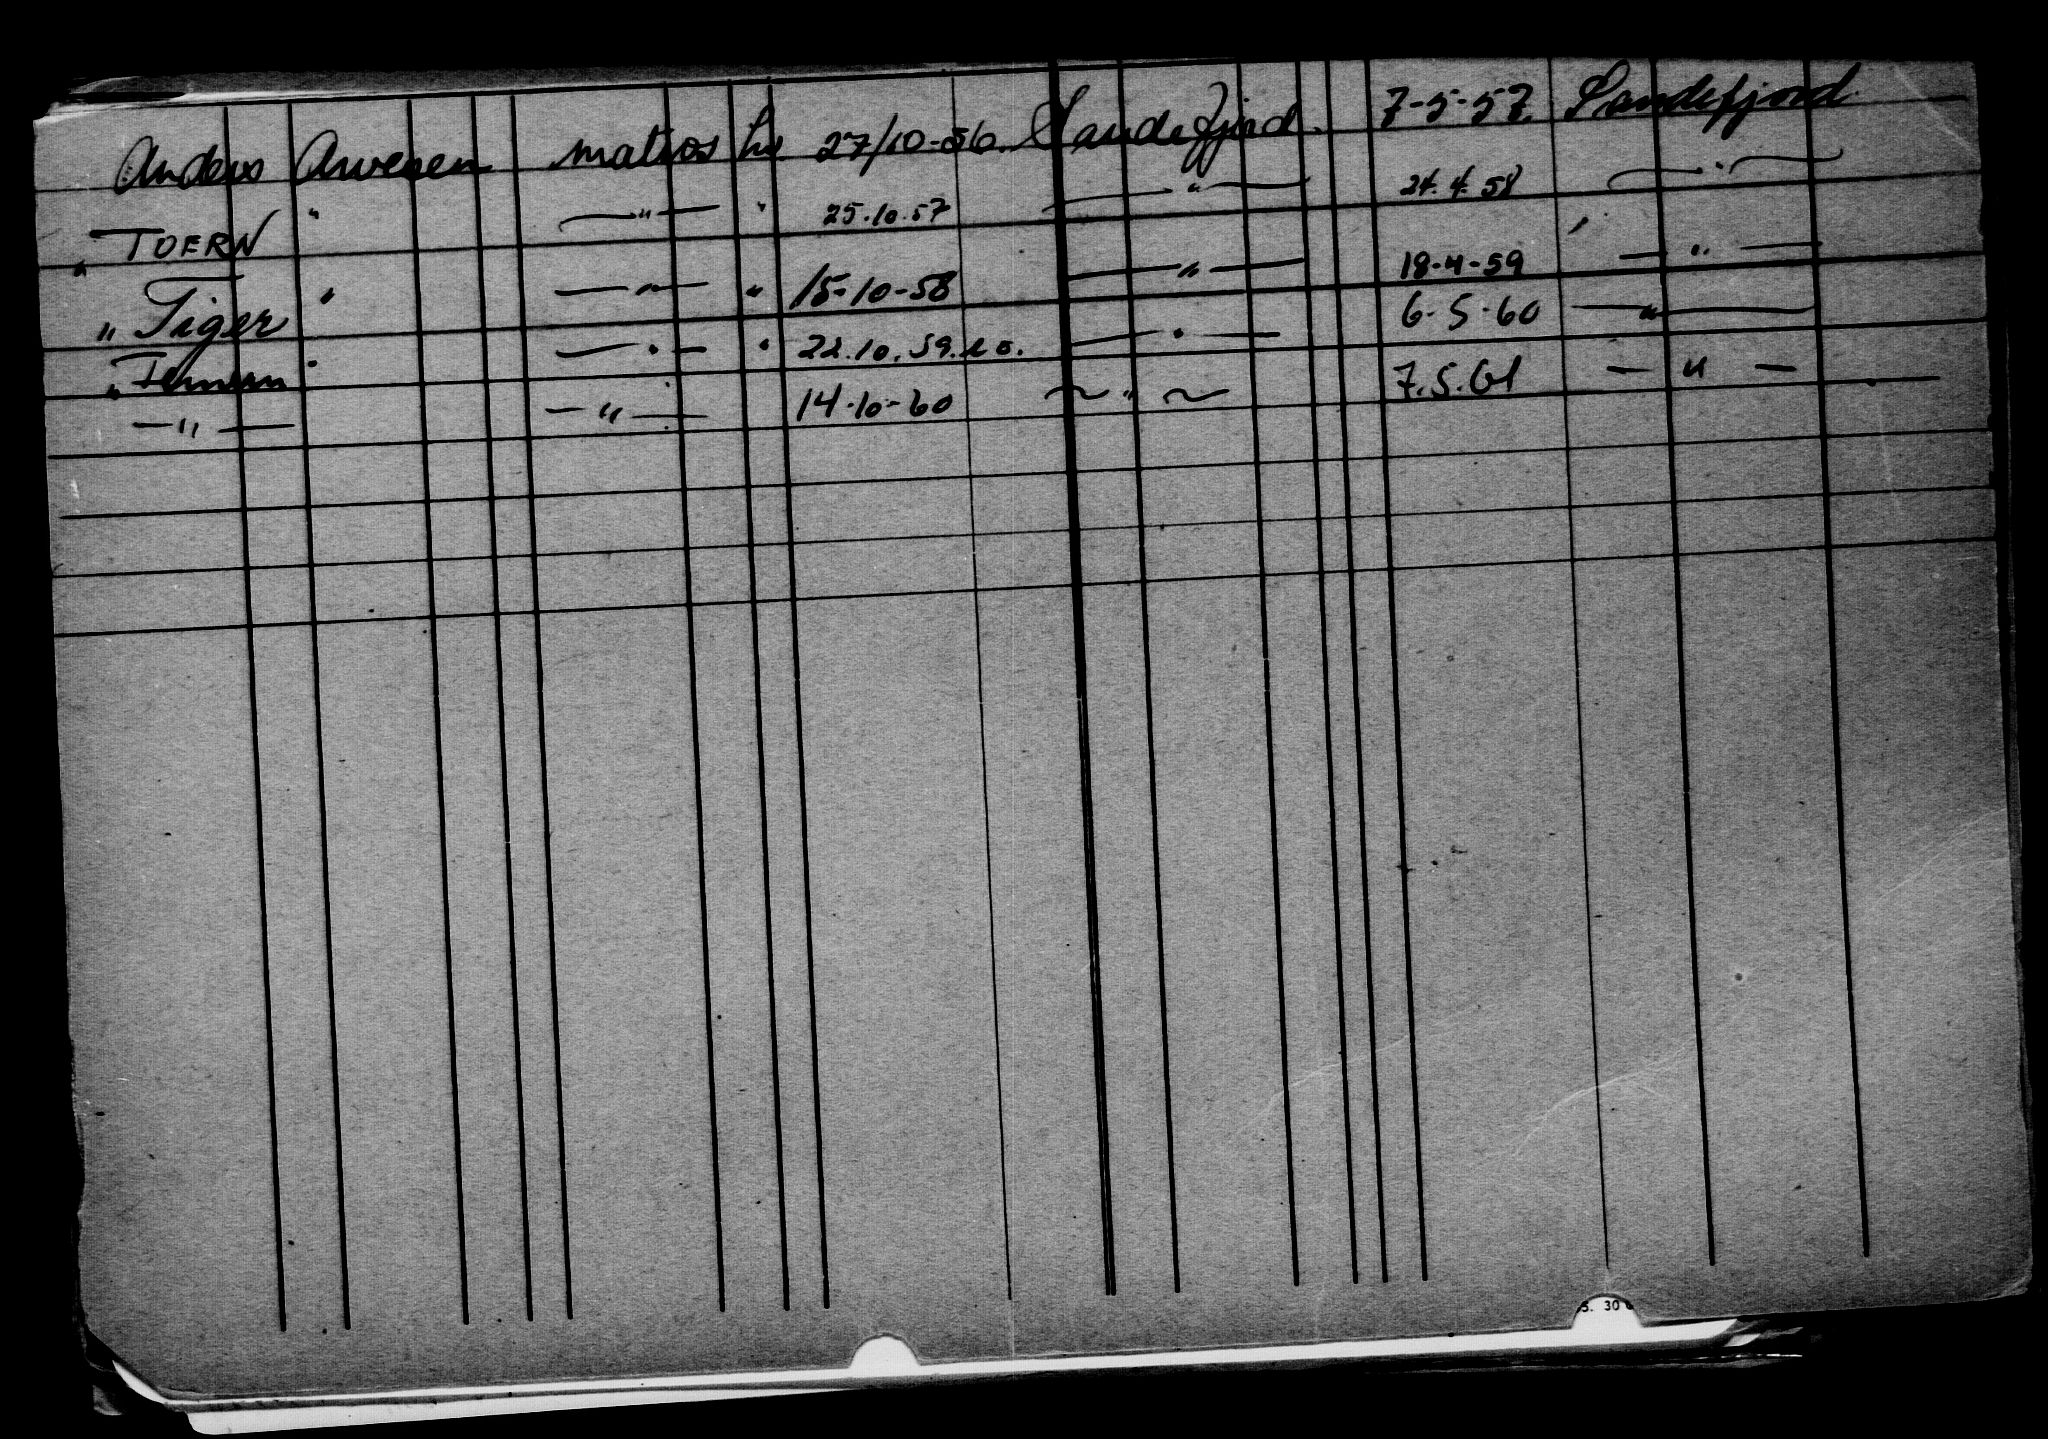 Anders Arvesen matros hv 27/10-56 Sandefjord. 7-5-57. Sandefjord.
TOERN " — " — " 25.10.57 — " — 24.4.58 — " —
" Tiger " — " — " 15-10-58 — " — 18-4-59 — " —
" Ternen " — " — " 22.10.59. — " — 6-5-60 — " —
— " — — " — 14-10-60 ~ " ~ 7.5.61 — " —
S. 30